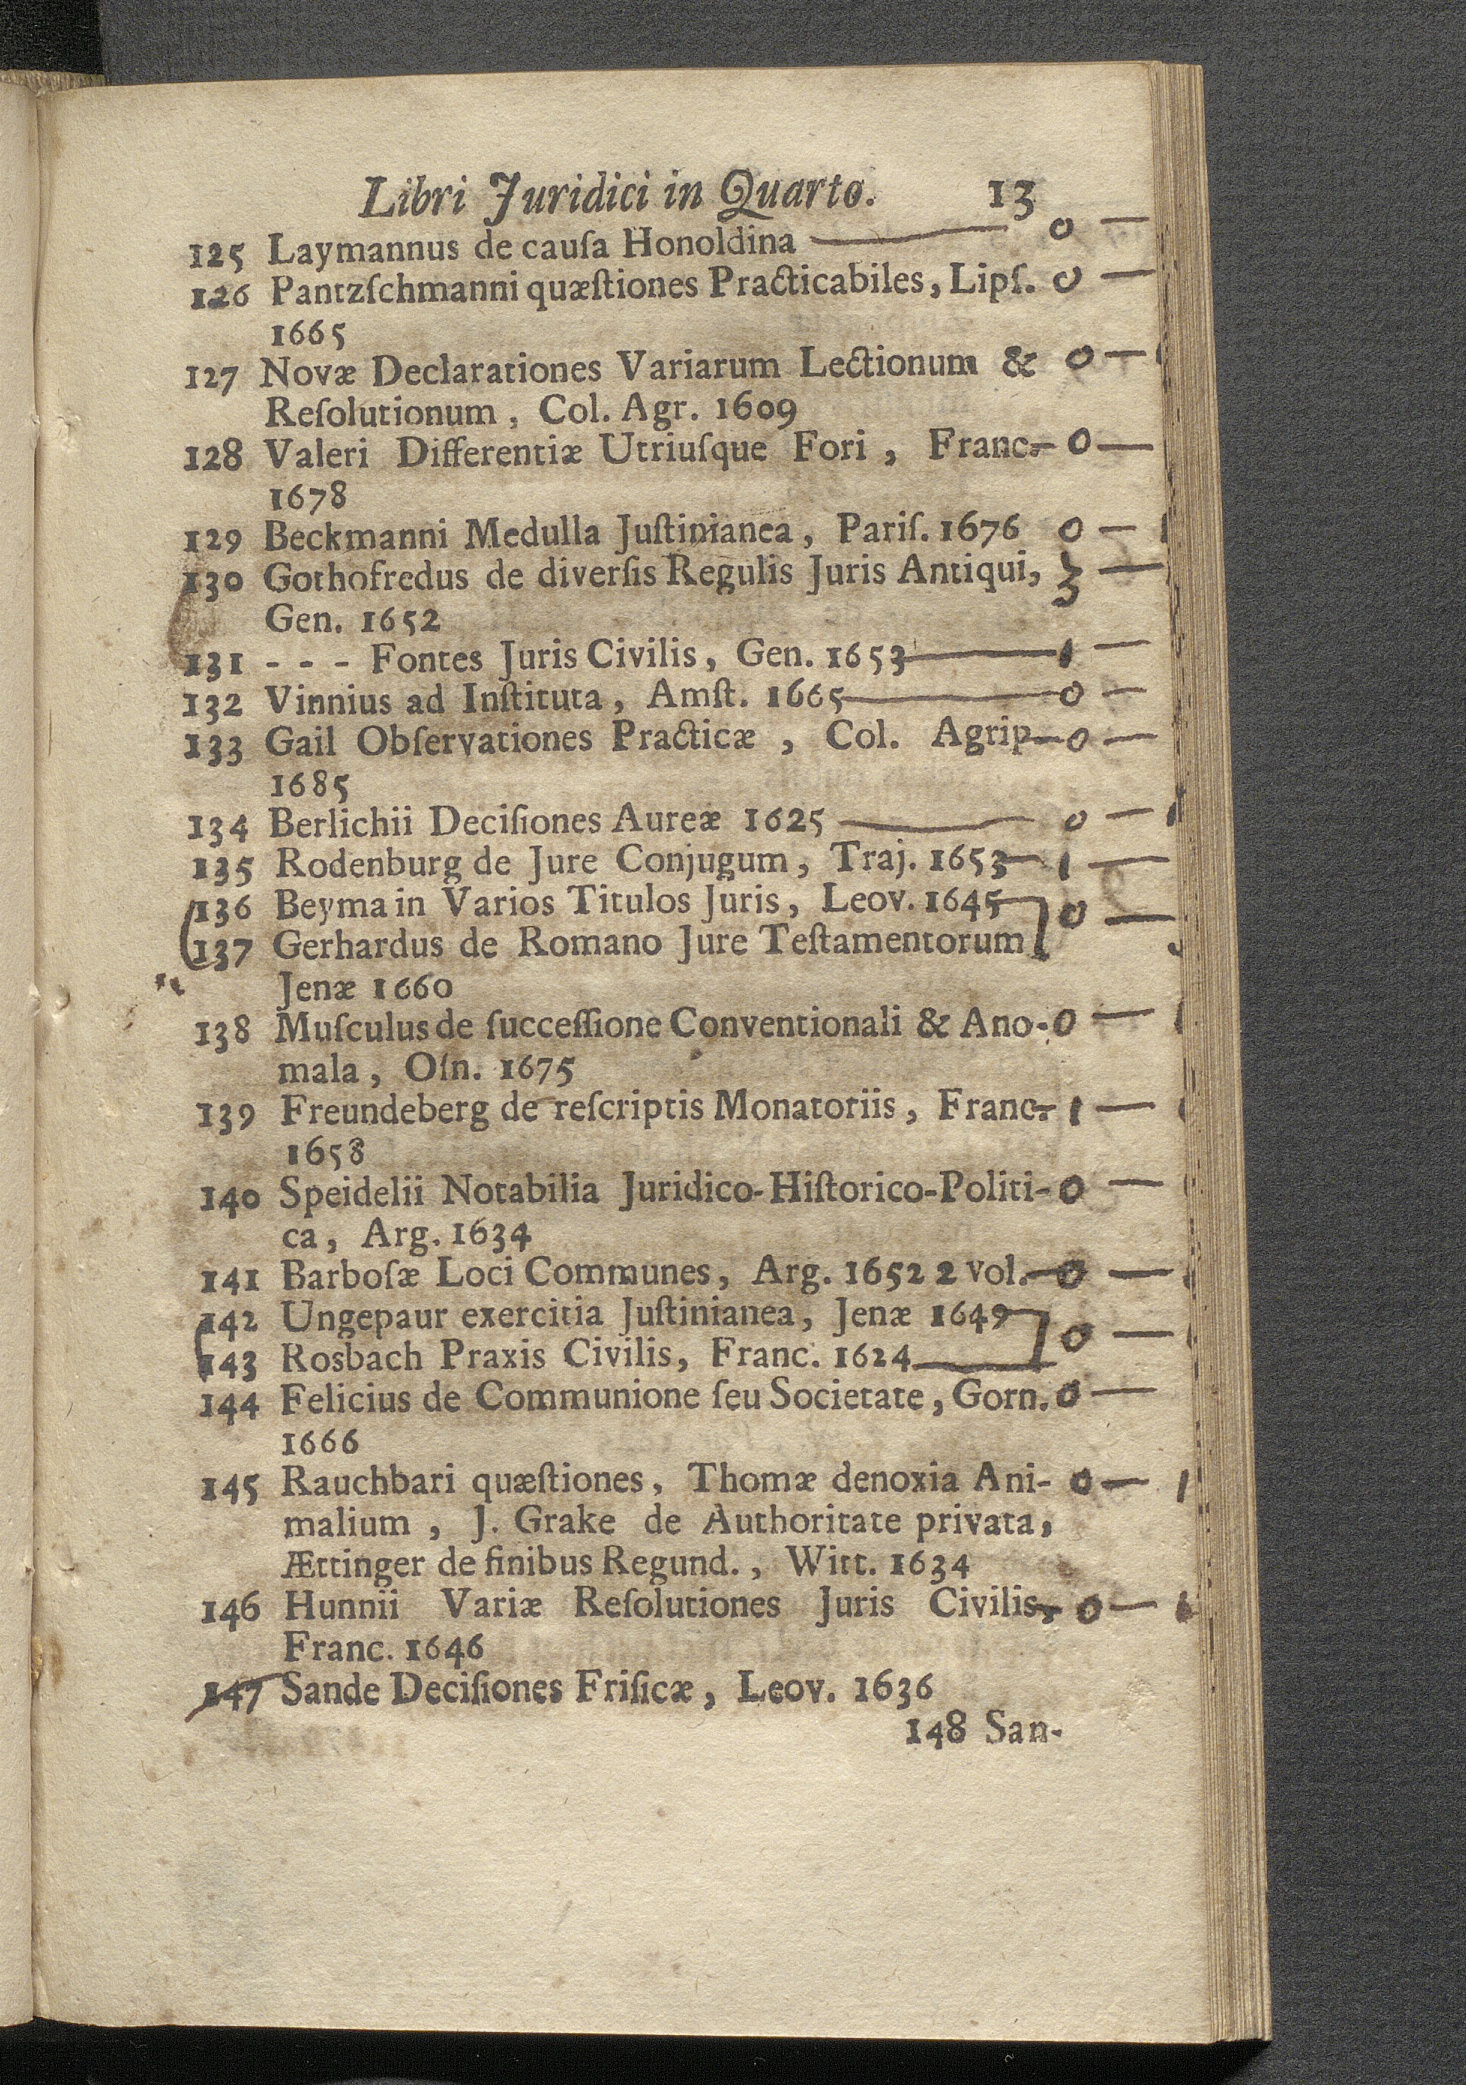 Libri Juridici in Quarto. 13
125 Laymannus de cauſa Honoldina — 0 —
126 Pantzſchmanni quæſtiones Practicabiles, Lipſ. 0 —
1665
127 Novæ Declarationes Variarum Lectionum & 0 —
Reſolutionum, Col. Agr. 1609
128 Valeri Differentiæ Utriuſque Fori, Franc. 0 —
1678
129 Beckmanni Medulla Juſtinianea, Pariſ. 1676 0 —
130 Gothofredus de diverſis Regulis Juris Antiqui, 3 —
Gen. 1652
131 - - - Fontes Juris Civilis, Gen. 1653 — 1 —
132 Vinnius ad Inſtituta, Amſt. 1665 — 0 —
133 Gail Obſervationes Practicæ, Col. Agrip. — 0 —
1685
134 Berlichii Deciſiones Aureæ 1625 — 0 —
135 Rodenburg de Jure Conjugum, Traj. 1653 — 1 —
136 Beyma in Varios Titulos Juris, Leov. 1645 ] 0 —
137 Gerhardus de Romano Jure Teſtamentorum
Jenæ 1660
138 Muſculus de ſucceſſione Conventionali & Ano- 0 —
mala, Oſn. 1675
139 Freundeberg de reſcriptis Monatoriis, Franc. 1 —
1658
140 Speidelii Notabilia Juridico-Hiſtorico-Politi- 0 —
ca, Arg. 1634
141 Barboſæ Loci Communes, Arg. 1652 2 vol. — 0 —
142 Ungepaur exercitia Juſtinianea, Jenæ 1649 ] 0 —
143 Rosbach Praxis Civilis, Franc. 1624
144 Felicius de Communione ſeu Societate, Gorn. 0 —
1666
145 Rauchbari quæſtiones, Thomæ denoxia Ani- 0 —
malium, J. Grake de Authoritate privata,
Ættinger de finibus Regund., Witt. 1634
146 Hunnii Variæ Reſolutiones Juris Civilis, 0 —
Franc. 1646
147 Sande Deciſiones Friſicæ, Leov. 1636
148 San-